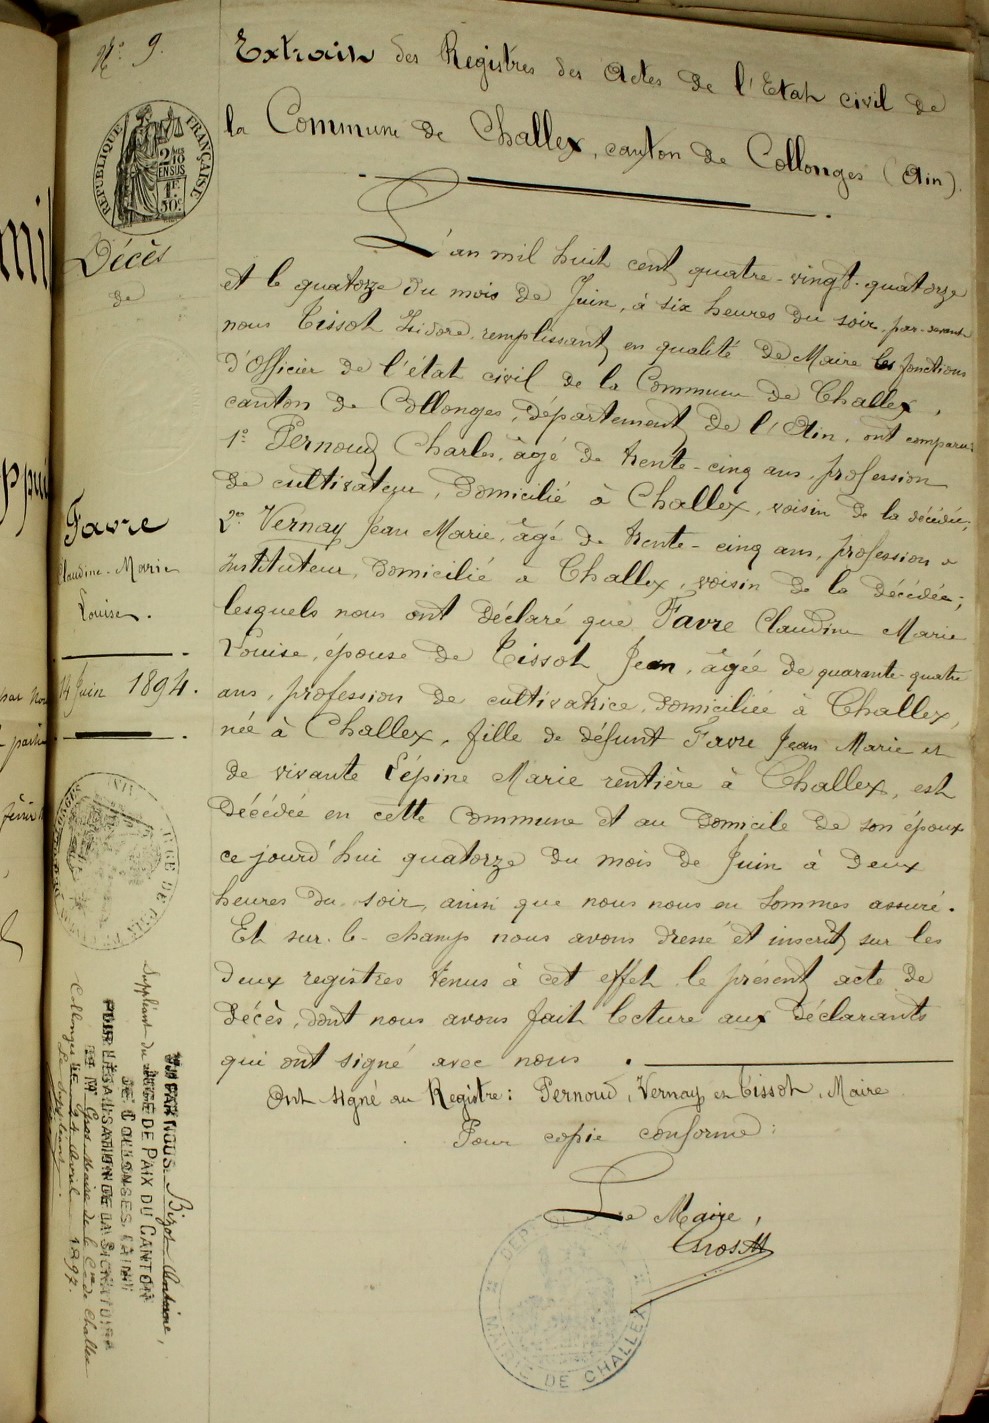 N° 9.
Extrait des Registres des Actes de l'Etat civil de
la Commune de Challex, canton de Collonges (Ain).
RÉPUBLIQUE FRANÇAISE
2/10 EN SUS
1F 50c
Décès
de
Favre
Claudine-Marie
Louise.
14 Juin 1894.
L'an mil huit cent quatre-vingt-quatorze
et le quatorze du mois de Juin, à six heures du soir, par-devant
nous Tissot Isidore, remplissant en qualité de Maire les fonctions
d'Officier de l'état civil de la Commune de Challex,
canton de Collonges, département de l'Ain, ont comparu:
1° Pernoud Charles, âgé de trente-cinq ans, profession
de cultivateur, domicilié à Challex, voisin de la décédée;
2° Vernay Jean Marie, âgé de trente-cinq ans, profession d'
instituteur, domicilié à Challex, voisin de la décédée;
lesquels nous ont déclaré que Favre Claudine Marie
Louise, épouse de Tissot Jean, âgée de quarante-quatre
ans, profession de cultivatrice, domiciliée à Challex,
née à Challex, fille de défunt Favre Jean Marie et
de vivante Lépine Marie rentière à Challex, est
décédée en cette Commune et au domicile de son époux
ce jourd'hui quatorze du mois de Juin à deux
heures du soir, ainsi que nous nous en sommes assuré.
Et sur-le-champ nous avons dressé et inscrit sur les
deux registres tenus à cet effet le présent acte de
décès, dont nous avons fait lecture aux déclarants
qui ont signé avec nous.
Ont signé au Registre: Pernoud, Vernay et Tissot, Maire
Pour copie conforme:
Le Maire,
Gros M
MAIRIE DE CHALLEX
VU PAR NOUS Bizot Antoine,
Suppléant du JUGE DE PAIX DU CANTON
DE COLLONGES (AIN)
POUR LÉGALISATION DE LA SIGNATURE
de M. Gros Maire de la Cne de Challex
Collonges le Avril 1897.
Le Suppléant,